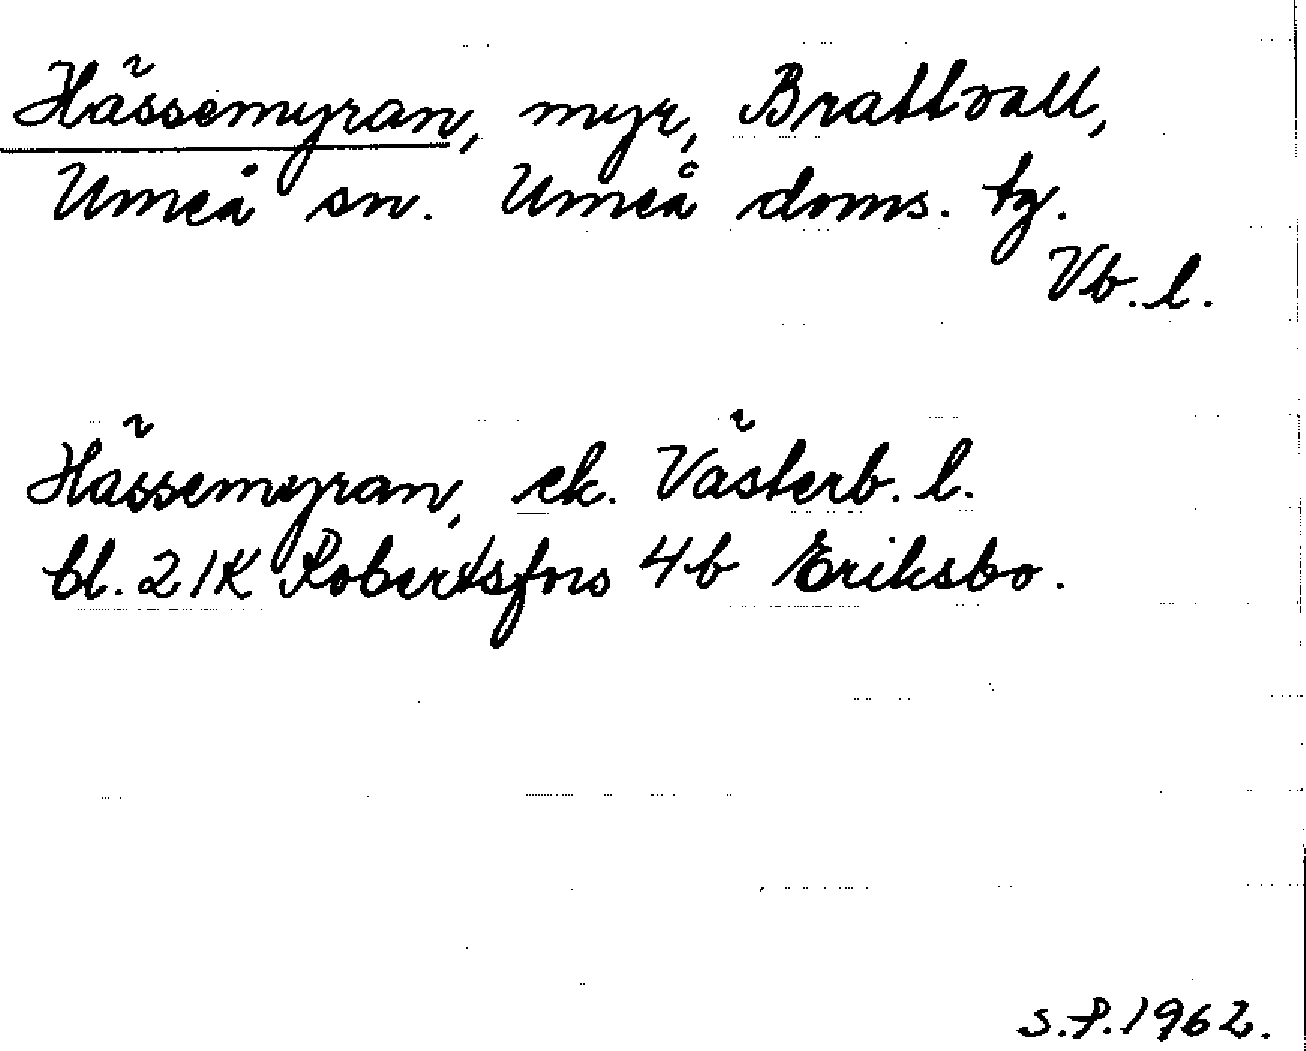 Hässemyran, myr, Brattvall,
Umeå sn. Umeå doms. tg.
Vb. l.
Hässemyran, ek. Västerb. l.
bl. 21K Robertsfors 4b Eriksbo.
S.P. 1962.